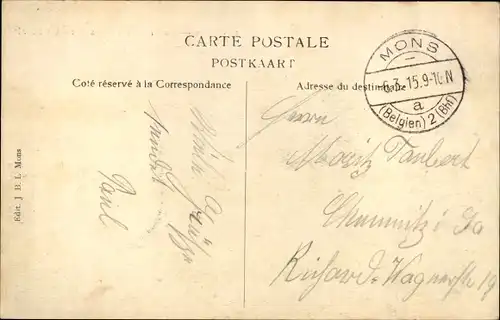 CARTE POSTALE
POSTKAART
Coté réservé à la Correspondance
Adresse du destinataire
MONS
6.3.15.9-10N
a
(Belgien) 2 (Bhf)
Herrn
Moritz Taubert
Chemnitz i Sa
Richard-Wagnerstr 19
Paul
Edit. J. B. L. Mons